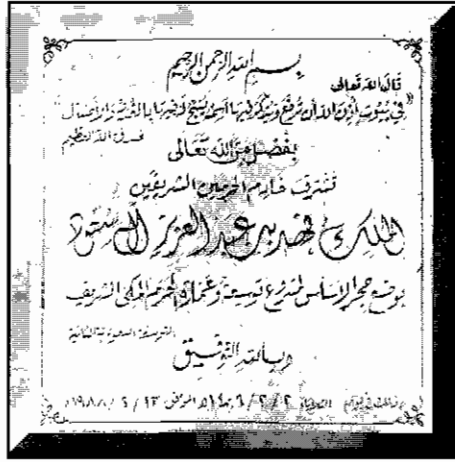 بسم الله الرحمن الرحيم
قال الله تعالى
في بيوت أذن الله أن ترفع ويذكر فيها اسمه يسبح له فيها بالغدو والآصال
صدق الله العظيم
بفضل من الله تعالى
تشرف خادم الحرمين الشريفين
الملك فهد بن عبد العزيز آل سعود
بوضع حجر الأساس لمشروع توسعة وعمارة الحرم المكي الشريف
التوسعة السعودية الثانية
وبالله التوفيق